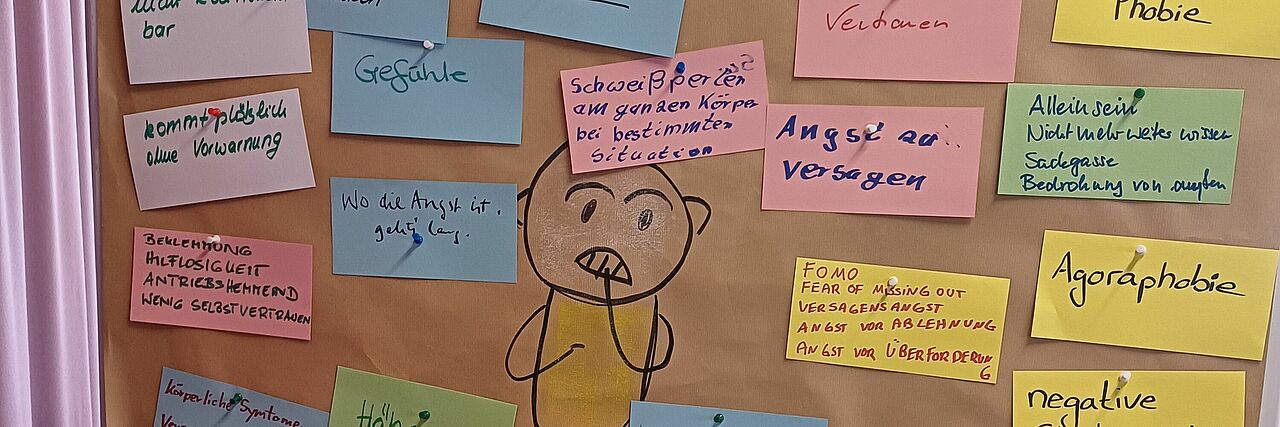 bar
kommt plötzlich
ohne Vorwarnung
BEKLEMMUNG
HILFLOSIGKEIT
ANTRIEBSHEMMEND
WENIG SELBSTVERTRAUEN
körperliche Symtome
Gefühle
Wo die Angst ist,
geht's lang.
Schweißperlen
am ganzen Körper
bei bestimmten
Situation
Vertrauen
Angst zu
versagen
FOMO
FEAR OF MISSING OUT
VERSAGENSANGST
ANGST VOR ABLEHNUNG
ANGST VOR ÜBERFORDERUNG
Phobie
Alleinsein
Nicht mehr weiter wissen
Sackgasse
Bedrohung von außen
Agoraphobie
negative